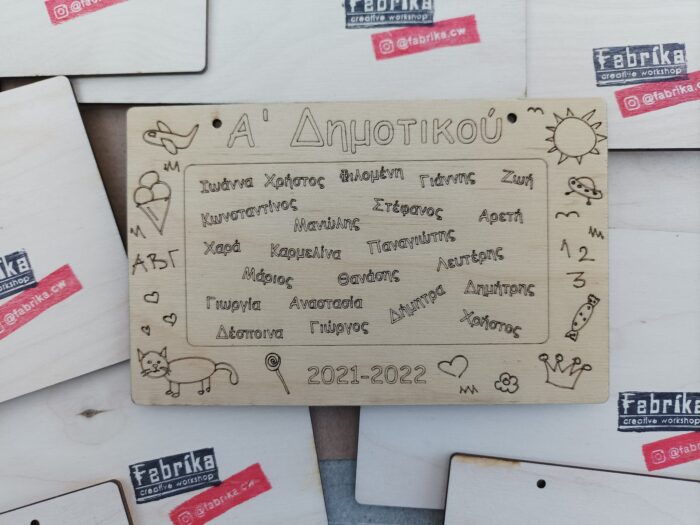 Α' Δημοτικού
Ιωάννα Χρήστος Φιλομένη Γιάννης Ζωή
Κωνσταντίνος Μανώλης Στέφανος Αρετή
Χαρά Καρμελίνα Παναγιώτης Λευτέρης
Μάριος Θανάσης Δήμητρα Δημήτρης
Γιωργία Αναστασία
Δέσποινα Γιώργος Χρήστος
ΑΒΓ
1 2
3
2021-2022
Fabrika
creative workshop
@fabrika.cw
Fabrika
creative workshop
@fabrika.cw
Fabrika
creative workshop
@fabrika.cw
Fabrika
creative workshop
@fabrika.cw